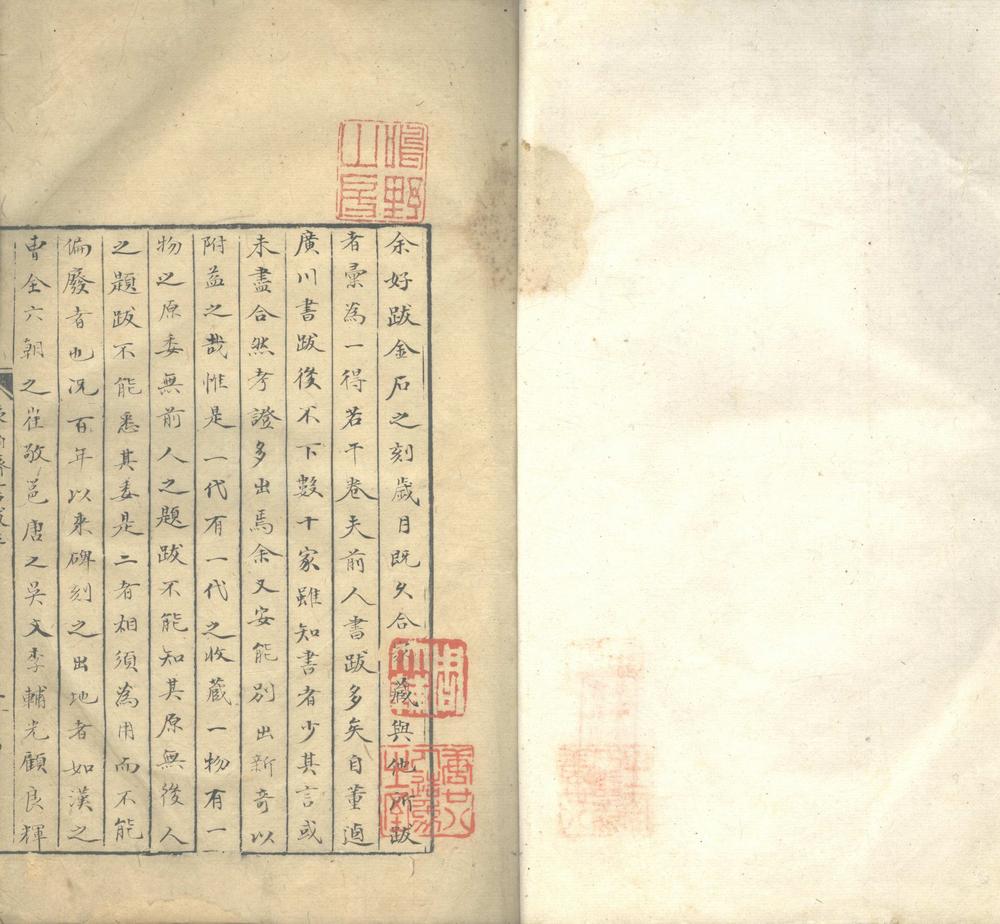 余好跋金石之刻歲月既久合家藏與他所跋
者彙為一得若干卷夫前人書跋多矣自董逌
廣川書跋後不下數十家雖知書者少其言或
未盡合然考證多出焉余又安能別出新奇以
附益之哉惟是一代有一代之收藏一物有一
物之原委無前人之題跋不能知其原無後人
之題跋不能悉其委是二者相須為用而不能
偏廢者也况百年以來碑刻之出地者如漢之
曹全六朝之崔敬邕唐之吳文李輔光顧良輝
山居